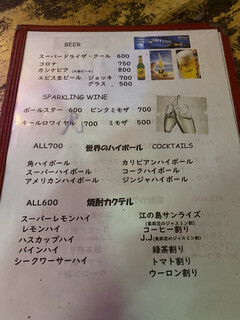 BEER
スーパードライザ・クール 600
コロナ 750
カンナビア (大麻ビール) 800
エビス生ビール ジョッキ 700
グラス 500
SPARKLING WINE
ポールスター 600 ピンクミモザ 700
キールロワイヤル 700 ミモザ 500
ALL700 世界のハイボール COCKTAILS
角ハイボール カリビアンハイボール
スーパーハイボール コークハイボール
アメリカンハイボール ジンジャハイボール
ALL600 焼酎カクテル
スーパーレモンハイ 江の島サンライズ
(茉莉花のジャスミン割)
レモンハイ コーヒー割り
ハスカップハイ J.J(茉莉花のジャスミン割)
パインハイ 緑茶割り
シークワーサーハイ トマト割り
ウーロン割り